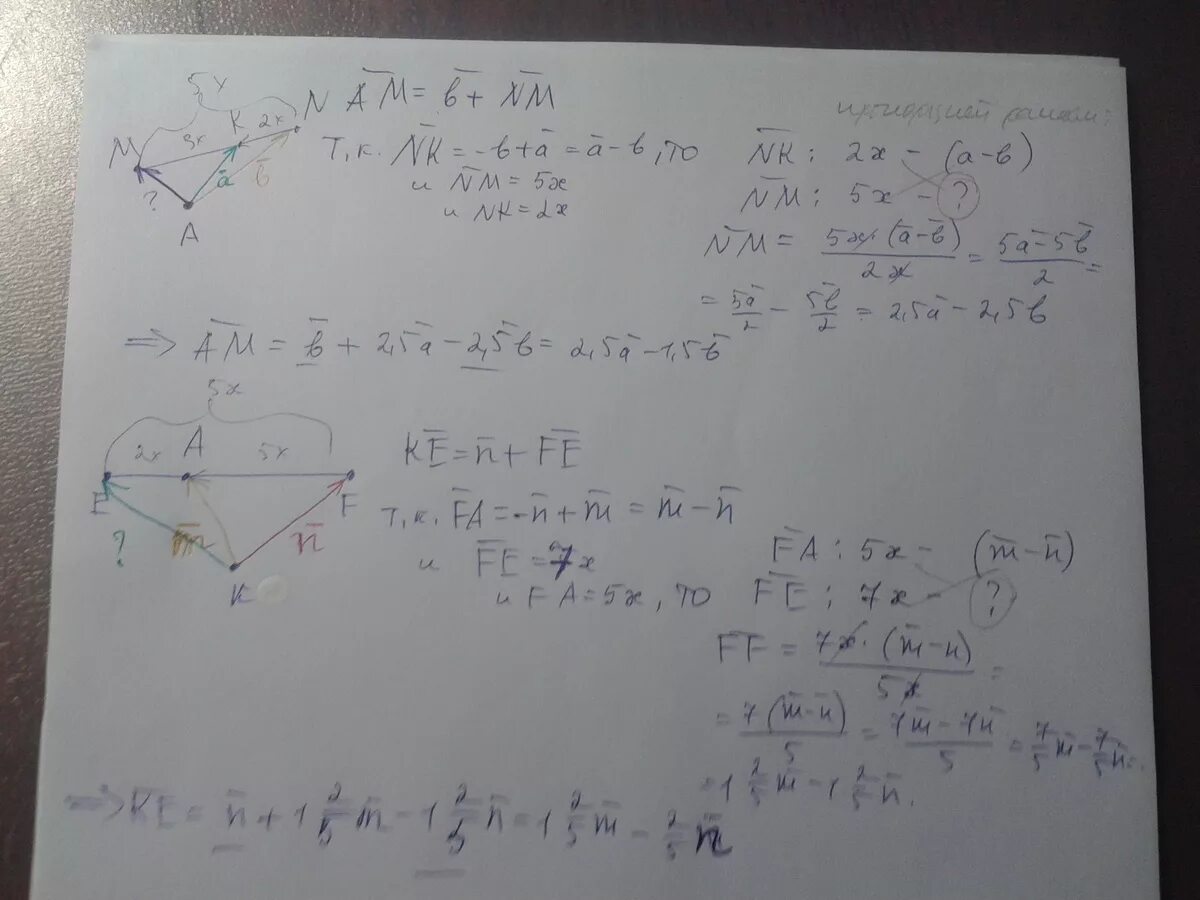 5x
N
K
2x
3x
M
ā
b̄
?
A
A̅M̅ = b̄ + N̅M̅
Т.к. N̅K̅ = -b + ā = ā - b, то
и N̅M̅ = 5x
и NK = 2x
N̅K̅: 2x - (a-b)
N̅M̅: 5x - ?
N̅M̅ = 5x·(ā-b̄)/2x = (5ā-5b̄)/2 =
= 5ā/2 - 5b̄/2 = 2,5ā - 2,5b
=> A̅M̅ = b̄ + 2,5ā - 2,5b̄ = 2,5ā - 1,5b̄
5x
A
2x
5x
E
F
?
m̄
n̄
K
K̅E̅ = n̄ + F̅E̅
Т.к. F̅A̅ = -n̄ + m̄ = m̄ - n̄
и F̅E̅ = 7x
и FA = 5x, то
F̅A̅: 5x - (m̄-n̄)
F̅E̅: 7x - ?
F̅E̅ = 7x·(m̄-n)/5x =
= 7(m̄-n̄)/5 = (7m̄-7n̄)/5 = 7/5 m̄ - 7/5 n̄ =
= 1 2/5 m̄ - 1 2/5 n̄.
=> K̅E̅ = n̄ + 1 2/5 m̄ - 1 2/5 n̄ = 1 2/5 m̄ - 2/5 n̄